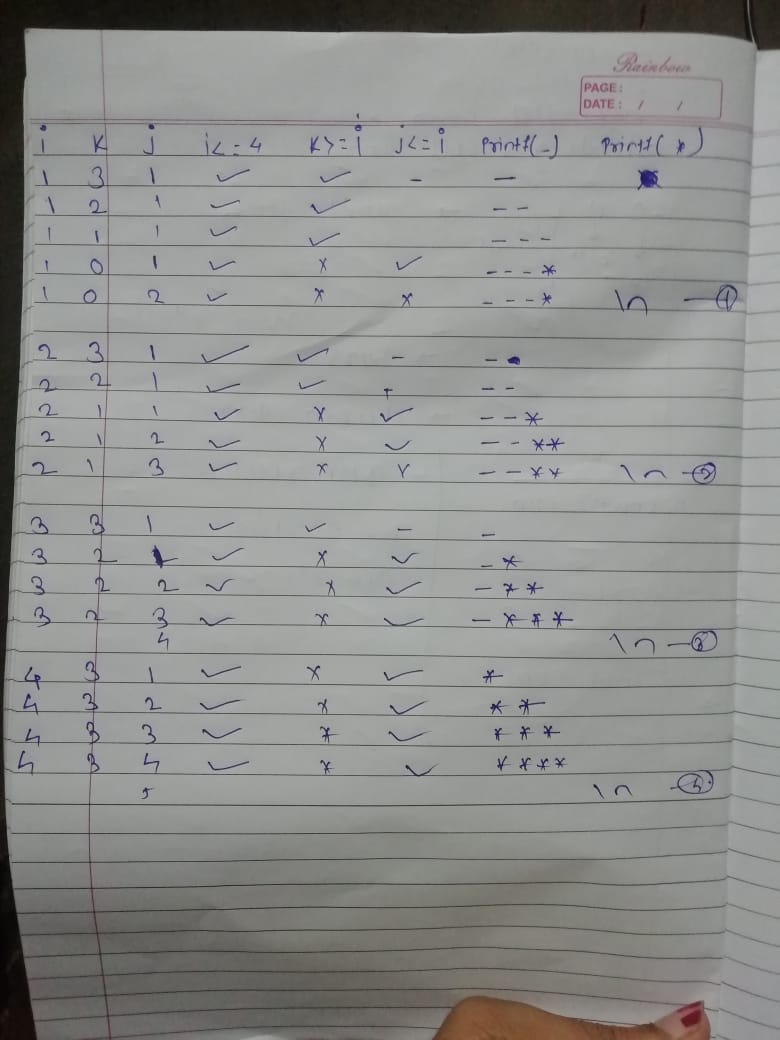 Rainbow
PAGE:
DATE: / /
i K j i<=4 K>=i j<=i printf(-) printf(*)
1 3 1 ✓ ✓ - -
1 2 1 ✓ ✓ --
1 1 1 ✓ ✓ ---
1 0 1 ✓ x ✓ ---*
1 0 2 ✓ x x ---* \n -①
2 3 1 ✓ ✓ - -
2 2 1 ✓ ✓ - --
2 1 1 ✓ x ✓ --*
2 1 2 ✓ x ✓ --**
2 1 3 ✓ x x --** \n -②
3 3 1 ✓ ✓ - -
3 2 1 ✓ x ✓ -*
3 2 2 ✓ x ✓ -**
3 2 3 ✓ x ✓ -***
4 \n -③
4 3 1 ✓ x ✓ *
4 3 2 ✓ x ✓ **
4 3 3 ✓ x ✓ ***
4 3 4 ✓ x ✓ ****
5 \n -④